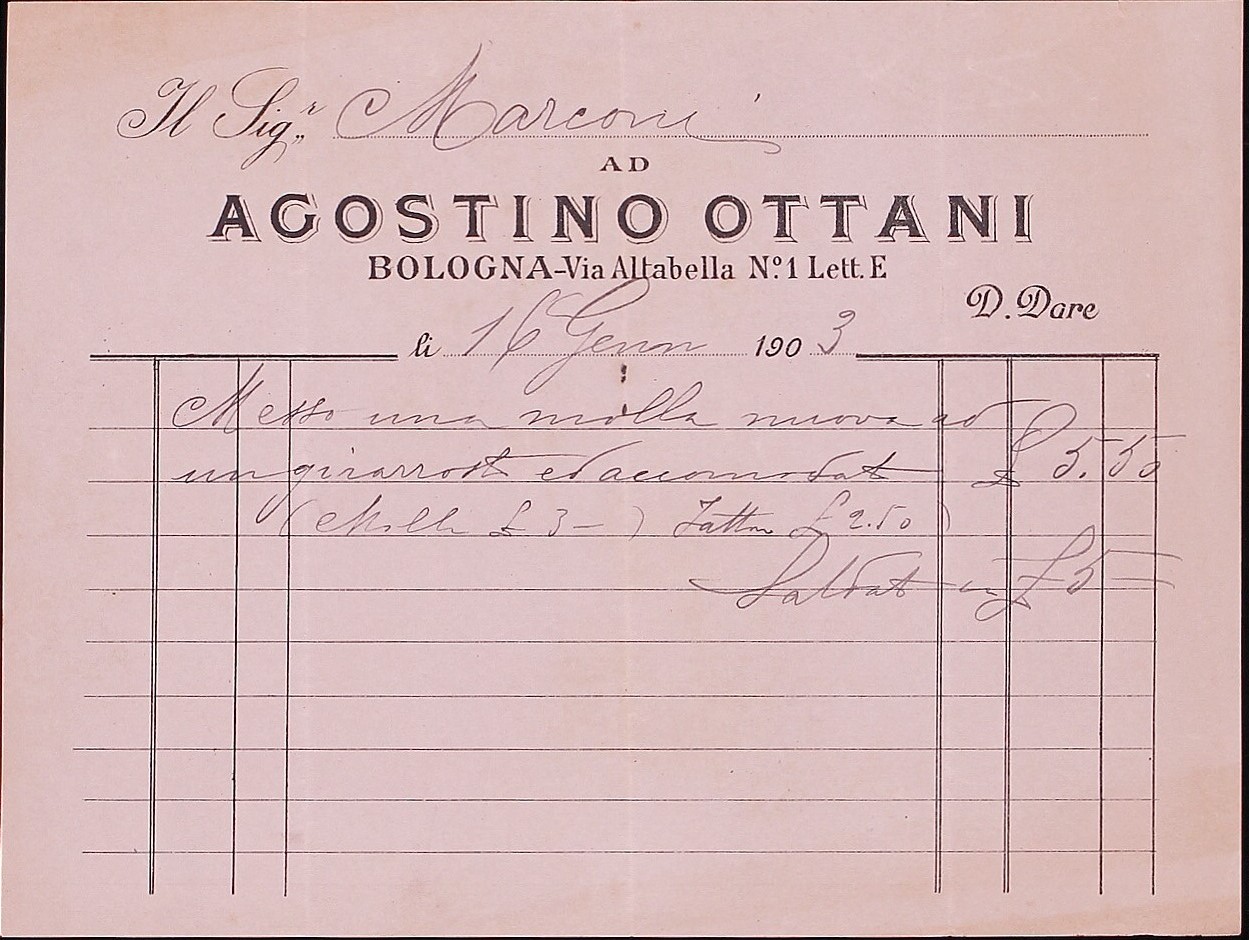 Il Sig.r Marconi
AD
AGOSTINO OTTANI
BOLOGNA-Via Altabella N.o 1 Lett. E
D. Dare
li 16 Genn 1903
Messo una molla nuova ad
un girarrosto ed accomodat £ 5.50
(Molla £ 3 - ) Fattu £ 2.50)
Saldat in £ 5